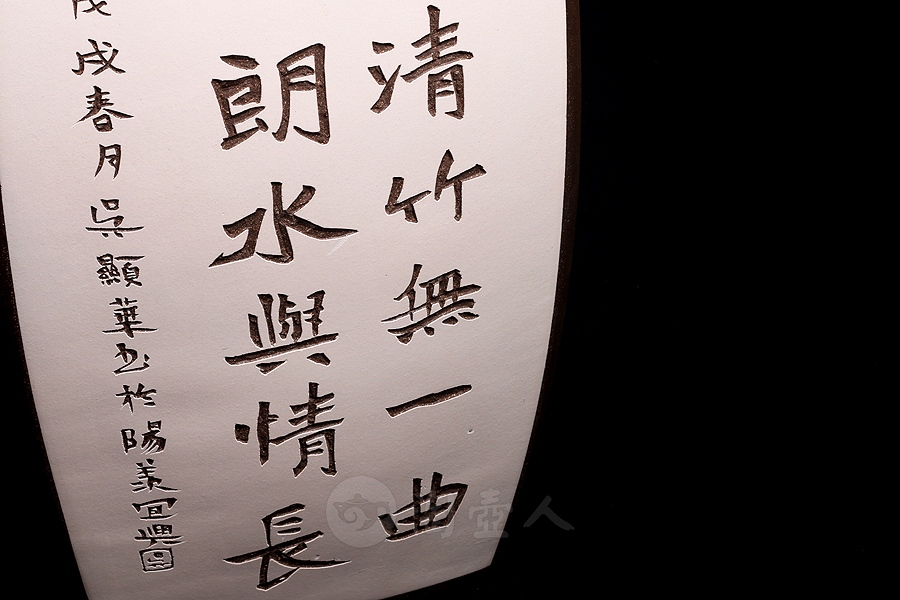 清竹無一曲
朗水與情長
戌春月吳顯華书於陽羨宜興
壺人